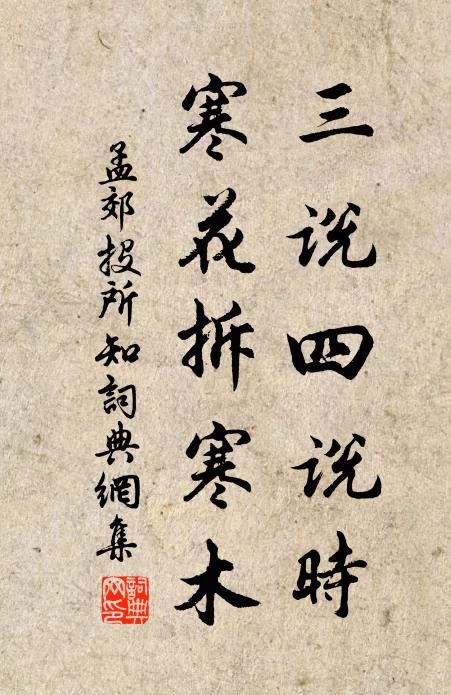 三说四说時
寒花拆寒木
孟郊投所知詞典網集
詞典网印